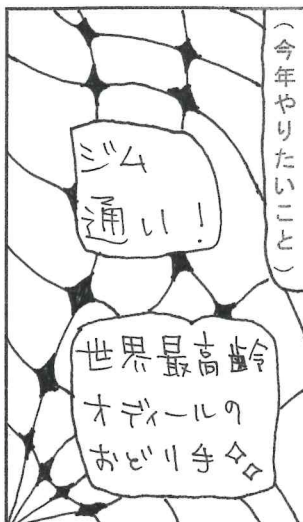 （今年やりたいこと）
ジム
通い！
世界最高齢
オディールの
おどり手✧✧